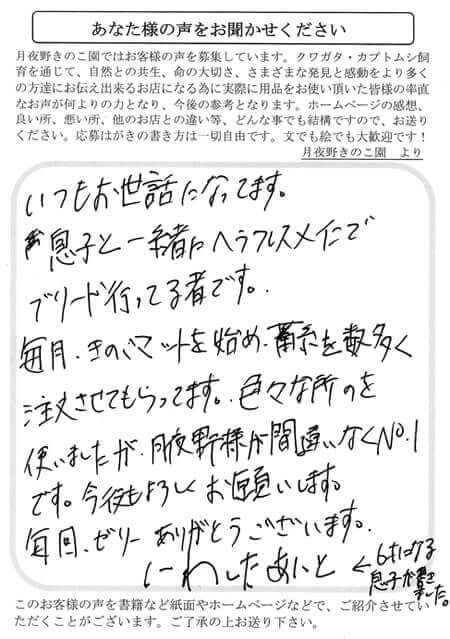 あなた様の声をお聞かせください
月夜野きのこ園ではお客様の声を募集しています。クワガタ・カブトムシ飼
育を通じて、自然との共生、命の大切さ、さまざまな発見と感動をより多く
の方達にお伝え出来るお店になる為に実際に用品をお使い頂いた皆様の率直
なお声が何よりの力となり、今後の参考となります。ホームページの感想、
良い所、悪い所、他のお店との違い等、どんな事でも結構ですので、お送り
ください。応募はがきの書き方は一切自由です。文でも絵でも大歓迎です！
月夜野きのこ園 より
いつもお世話になってます。
息子と一緒にヘラクレスメインで
ブリード行ってる者です。
毎月、きのこマットを始め、菌糸を数多く
注文させてもらってます。色々な所のを
使いましたが、月夜野様が間違いなくNo.1
です。今後もよろしくお願いします。
毎回、ゼリーありがとうございます。
いわしたあいと ← 6才になる
息子が書き
ました。
このお客様の声を書籍など紙面やホームページなどで、ご紹介させてい
ただくことがございます。ご了承の上お送り下さい。